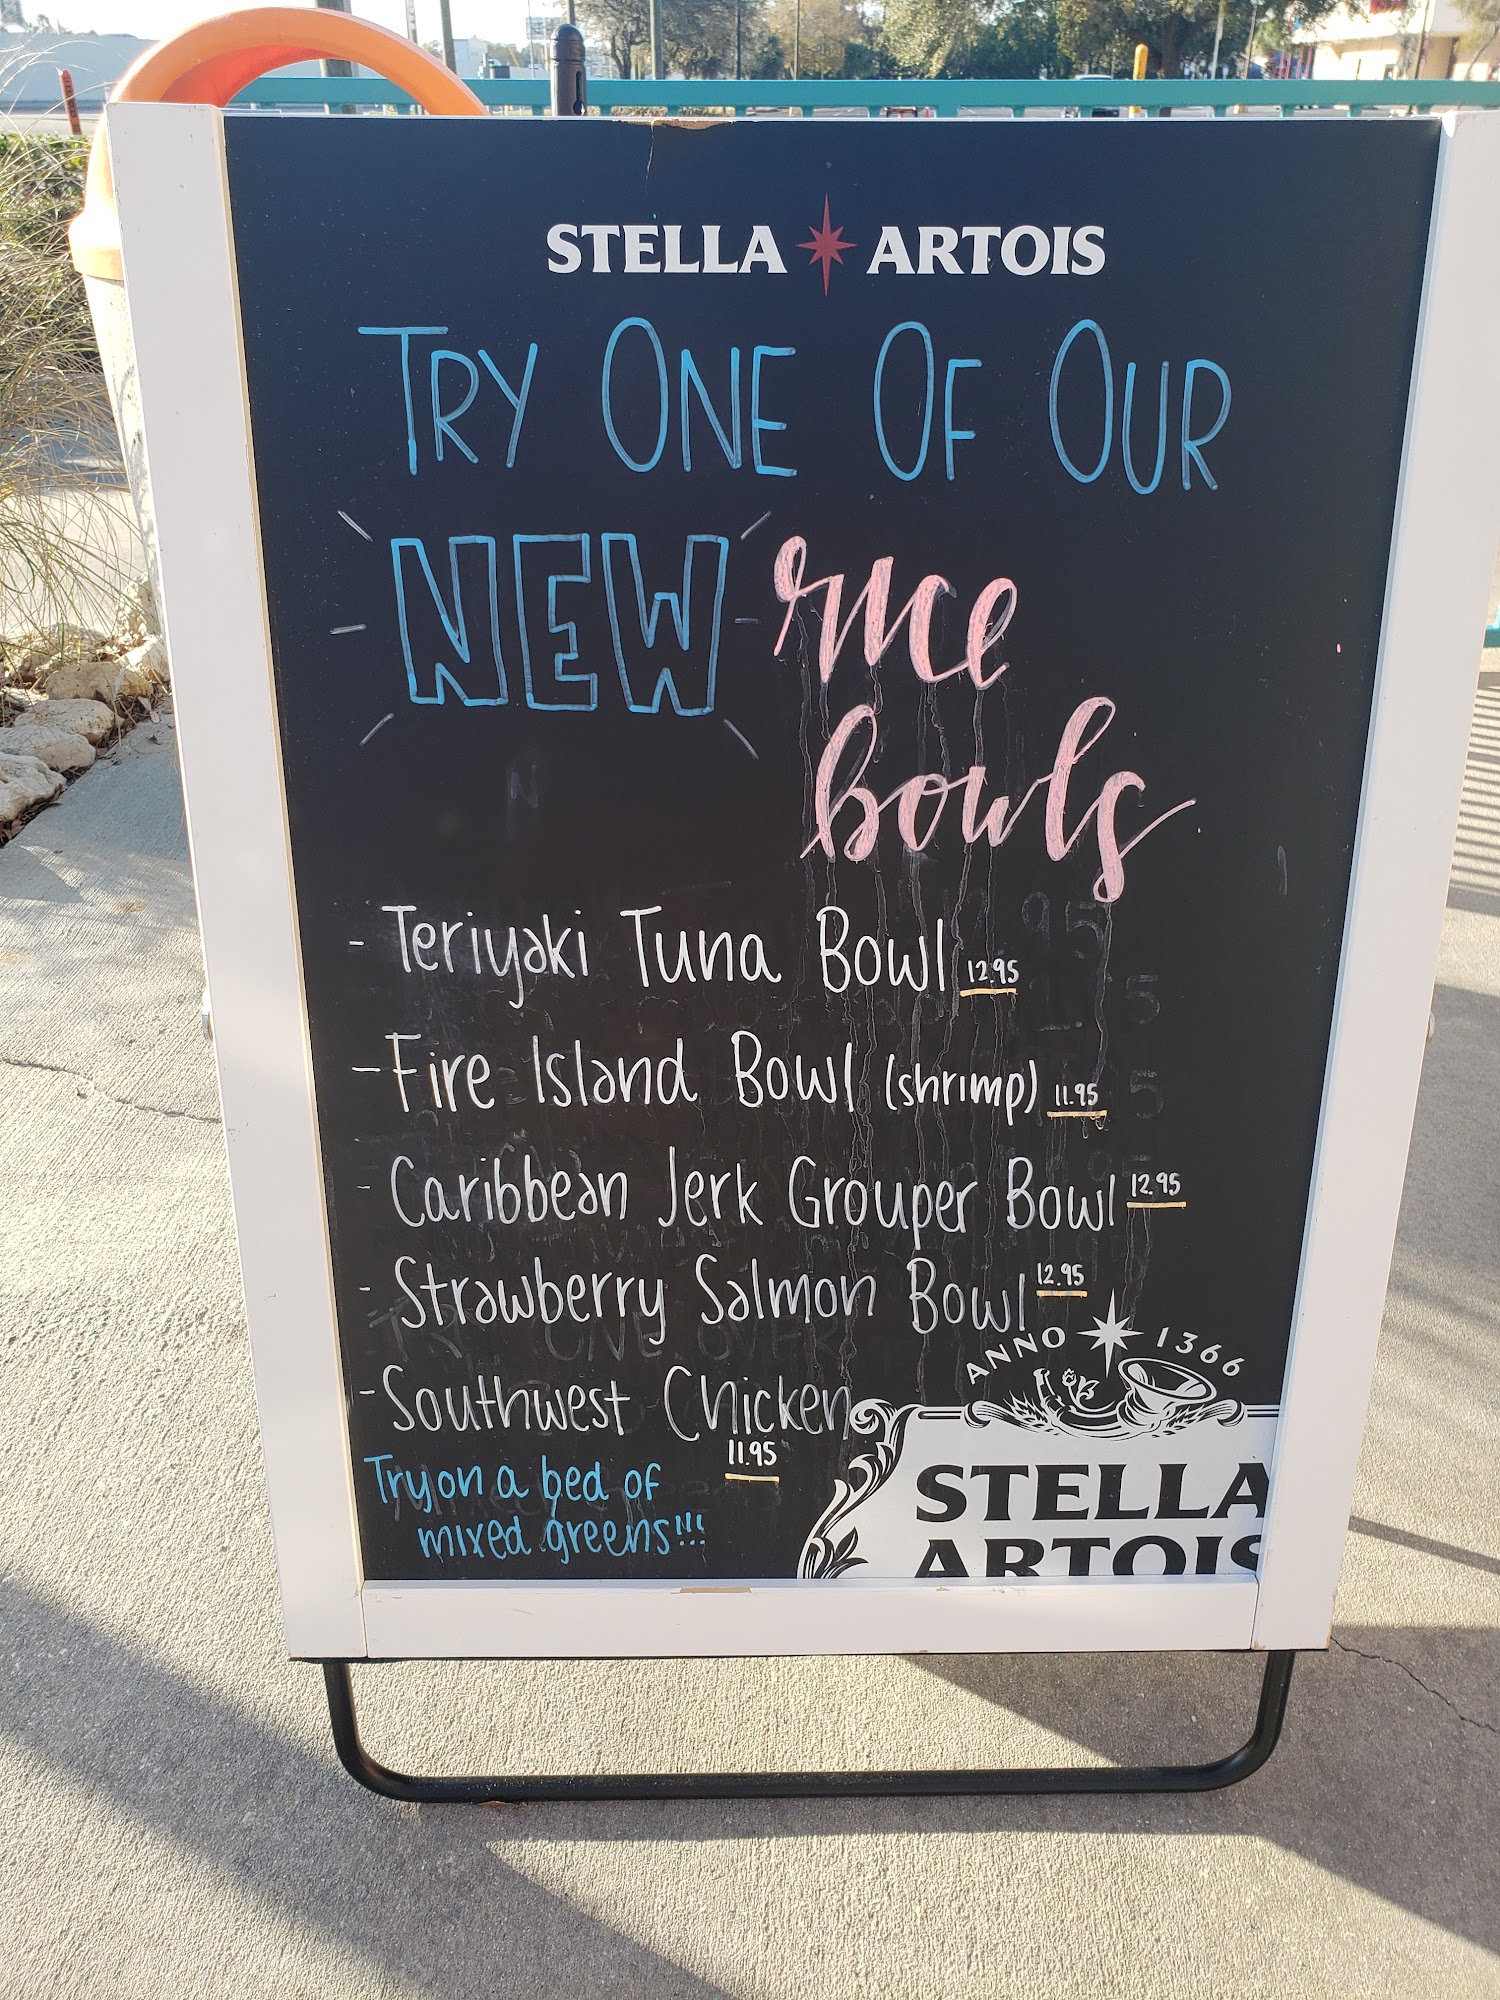 STELLA ARTOIS
TRY ONE OF OUR
NEW rice
bowls
- Teriyaki Tuna Bowl 12.95
- Fire Island Bowl (shrimp) 11.95
- Caribbean Jerk Grouper Bowl 12.95
- Strawberry Salmon Bowl 12.95
- Southwest Chicken
11.95
Try on a bed of
mixed greens!!!
ANNO 1366
STELLA
ARTOIS